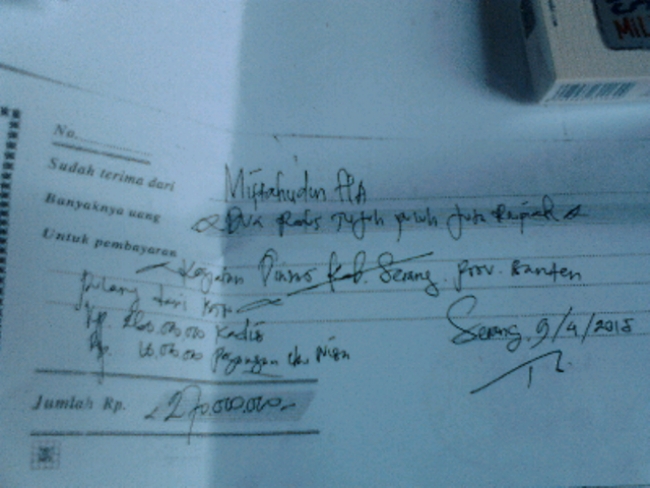 MiL
No.
Sudah terima dari Miftahudin
Banyaknya uang Dua Ratus Tujuh puluh Juta Rupiah
Untuk pembayaran Kegiatan Dinas Kab. Serang. Prov. Banten
hutang dari
Rp. 260.000.000 Kadis
Rp. 10.000.000
Serang, 9/4/2015
Jumlah Rp. 270.000.000-